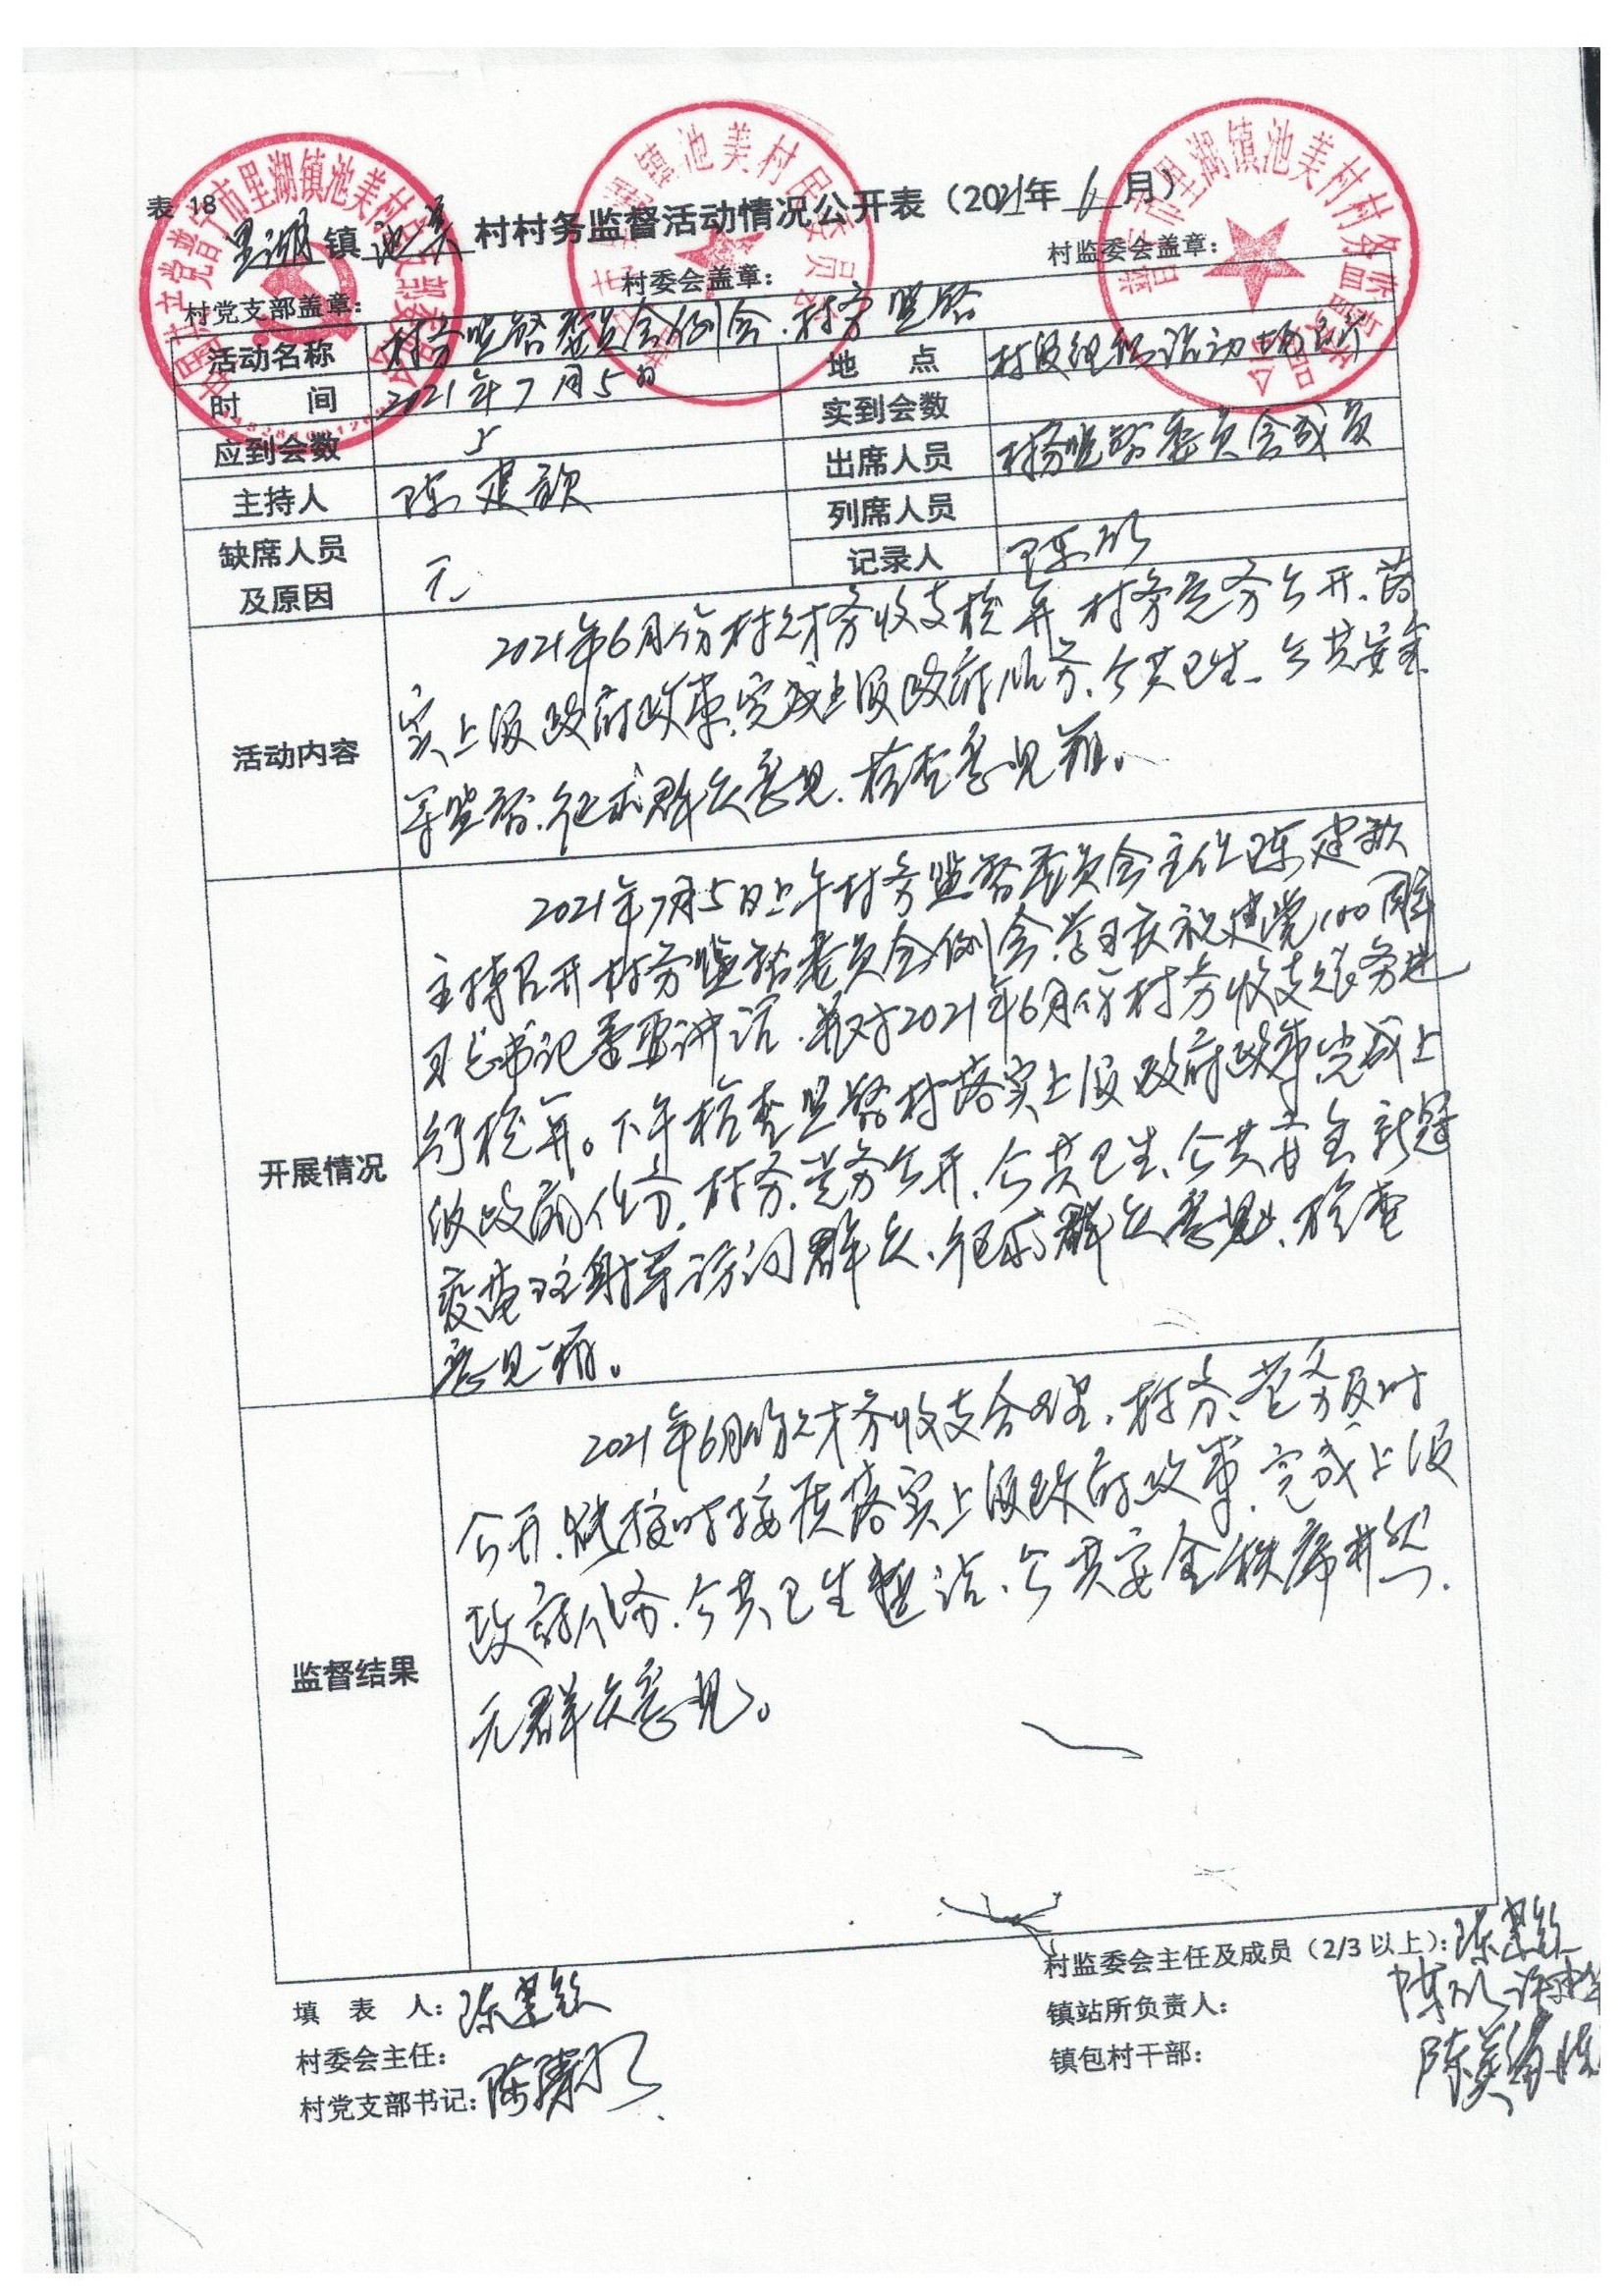 表 18
里湖镇池美村村务监督活动情况公开表（2021年6月）
村党支部盖章： 村委会盖章： 村监委会盖章：
活动名称 村务监督委员会例会、村务监督 地 点 村级组织活动场所
时 间 2021年7月5日 实到会数
应到会数 5 出席人员 村务监督委员会成员
主持人 陈建歆 列席人员
缺席人员及原因 无 记录人 陈
活动内容
2021年6月份村财务收支检算 村务党务公开、落
实上级政府政策,完成上级政府任务、公共卫生、公共安全
等监督、征求群众意见、检查意见箱。
开展情况
2021年7月5日上午村务监督委员会主任陈建歆
主持召开村务监督委员会例会、学习庆祝建党100周年
习总书记重要讲话、并对2021年6月份村务收支账务进
行检算。下午检查监督村落实上级政府政策,完成上
级政府任务、村务、党务公开、公共卫生、公共安全、新冠
疫苗注射等访问群众、征求群众意见、检查
意见箱。
监督结果
2021年6月份财务收支合理、村务、党务及时
公开、能按时按质落实上级政府政策、完成上级
政府任务、公共卫生整洁、公共安全秩序井然、
无群众意见。
村监委会主任及成员（2/3以上）：陈
填 表 人： 陈
镇站所负责人：
村委会主任：
镇包村干部：
村党支部书记： 陈